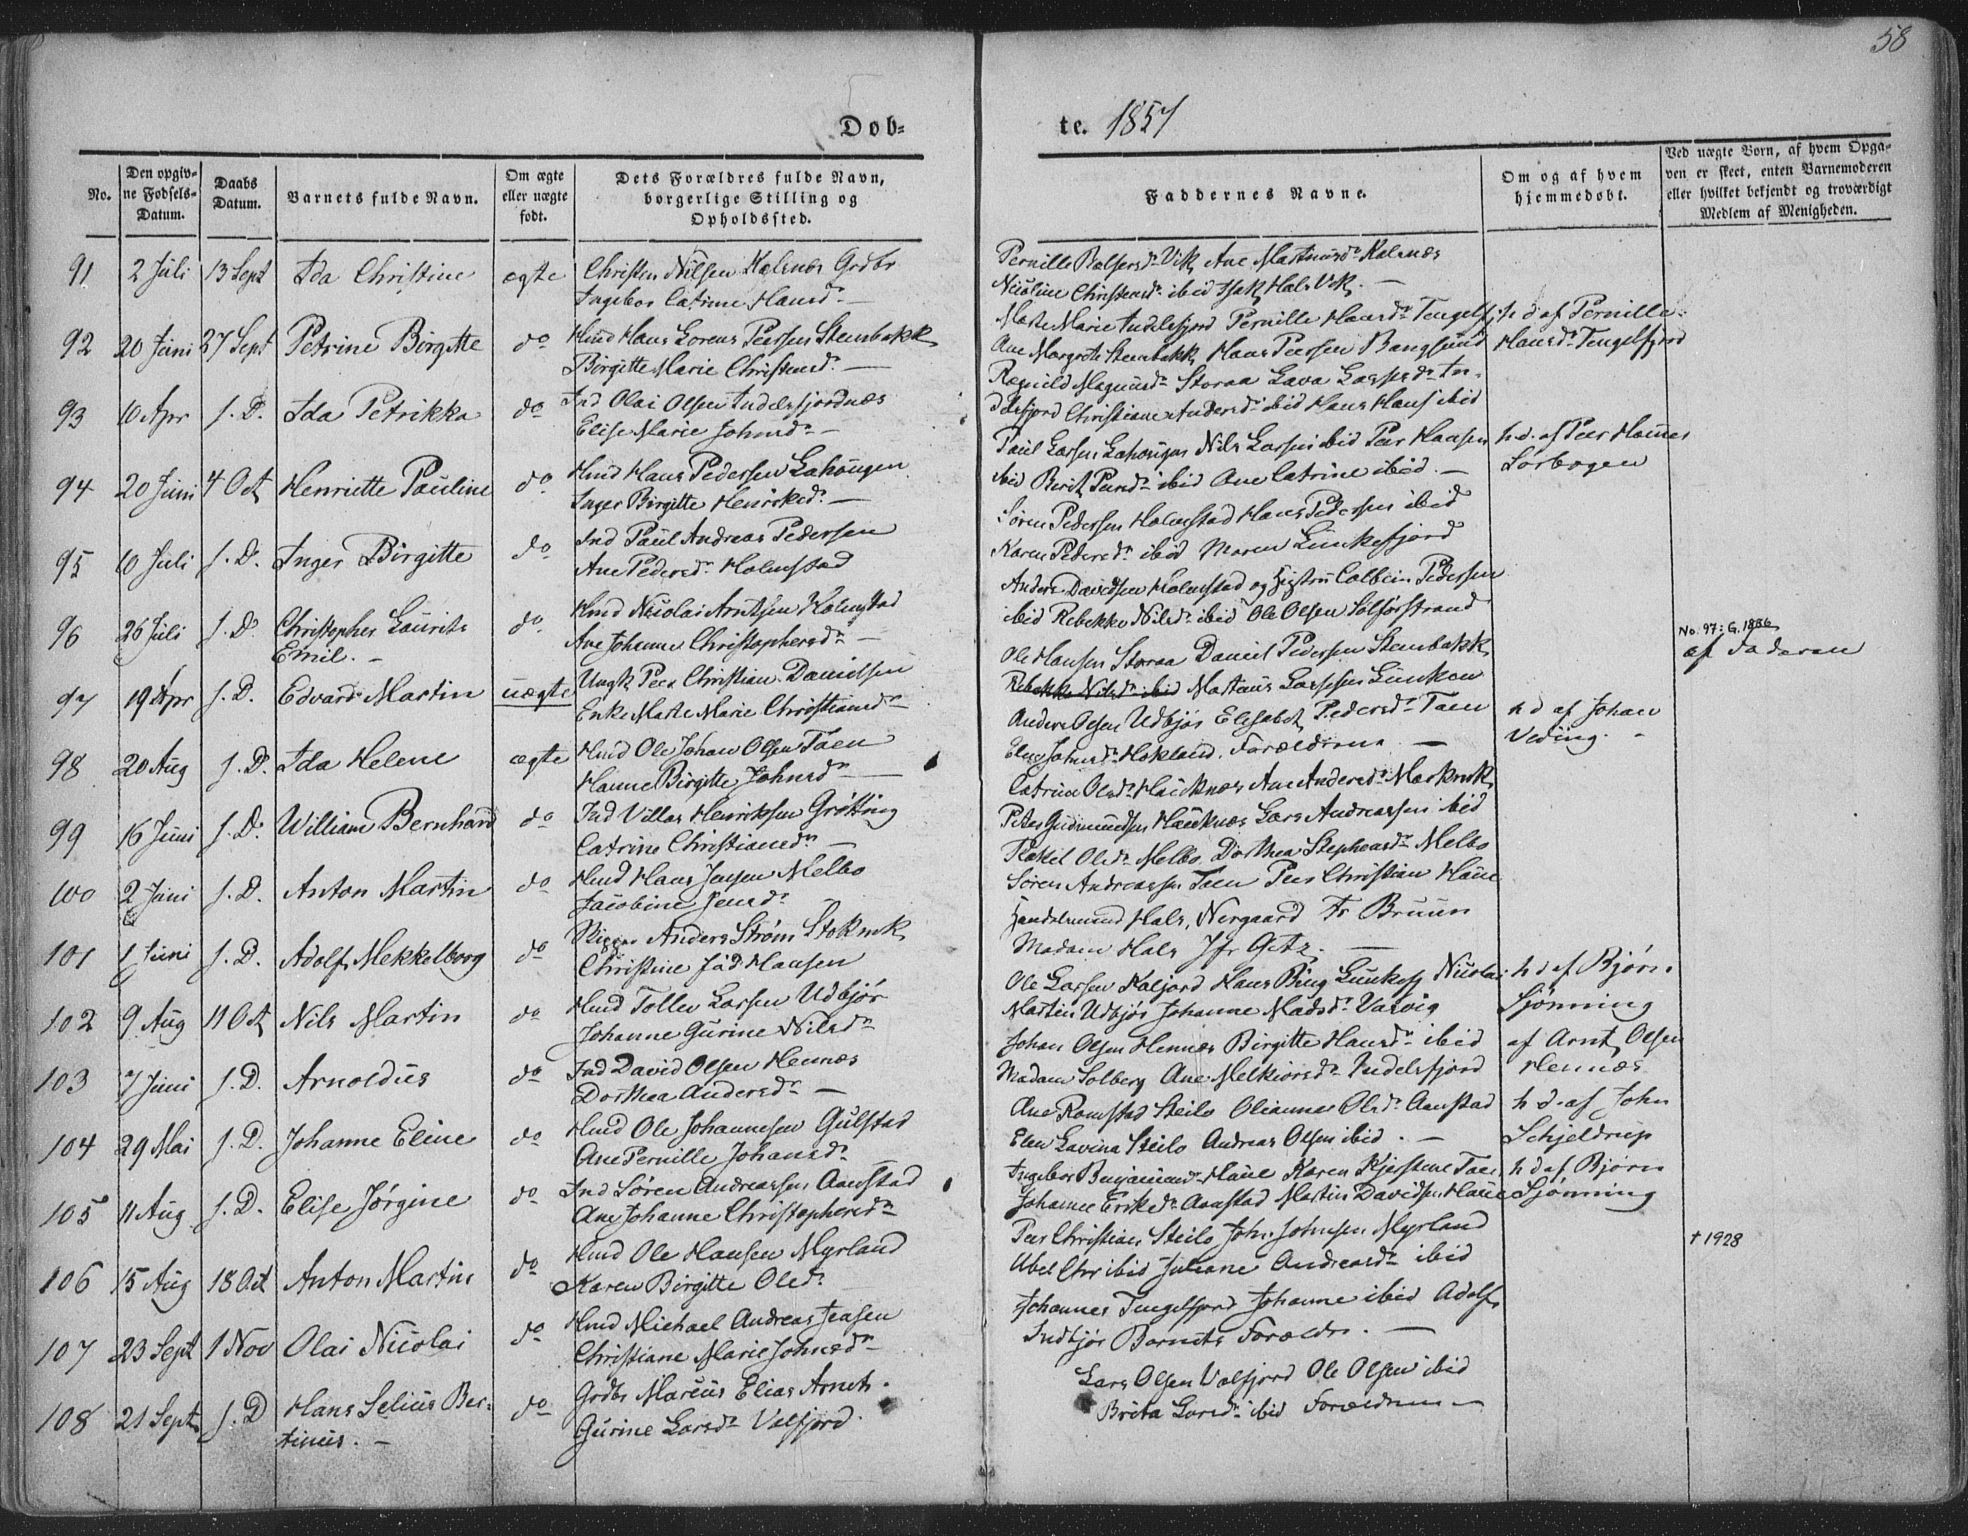 58
Døb-
te. 1857
No.
Den opgiv-
ne Fødsels-
Datum.
Daabs
Datum.
Barnets fulde Navn.
Om ægte
eller uægte
født.
Dets Forældres fulde Navn,
borgerlige Stilling og
Opholdssted.
Faddernes Navne.
Om og af hvem
hjemmedøbt.
Ved uægte Børn, af hvem Opga-
ven er skeet, enten Barnemoderen
eller hvilket bekjendt og troværdigt
Medlem af Menigheden.
91 2 Juli 13 Sept Ida Christine ægte Christen Nilsen Kalsnes Grdbr
Ingebor Catrine Hansdr. —
Pernille Vik, Ane Kalsnes
Nicoline ibid Isak Hals Vik. —
92 20 Juni 27 Sept Petrine Birgitte do Hmd Hans Lorens Peersen Stenbakk
Birgitte Marie Christensdr. —
Marte Marie Indelsfjord Pernille Hansdr Tengelfj.
Ane Margrete Stenbakk Hans Peersen Bangsund
h d af Pernille
Hansdr Tengelfjord
93 10 Apr s. D. Ida Petrikka do Ind Olai Olsen Indelsfjordnes
Elise Marie Johnsdr —
Ragnild Magnusdr Storaa Lava Larsdr In-
delsfjord Christiane Andersdr ibid Hans Hans ibid
94 20 Juni 4 Oct Henriette Pauline do Hmd Hans Pedersen Lahaugen
Inger Birgitte Henriksdr. —
Paul Larsen Lahaugen Nils Larsen ibid Peer Hansen
ibid Berit ibid Ane Catrine ibid. —
h. d. af Peer Hannes
Sørbogen
95 10 Juli s. D. Inger Birgitte do Ind Paul Andreas Pedersen
Ane Pedersdr Holmstad
Søren Pedersen Holmstad Hans Pedersen ibid
Karen Pedersdr ibid Maren Lunkefjord
96 26 Juli s. D. Christopher Laurits
Emil. —
do Hmd Nicolai Arntsen Holmstad
Ane Johanne Christophersdr —
Anders Davidsen Holmstad og Hustru Colbein Pedersen
ibid Rebekka Nilsdr ibid Ole Olsen Solforstrand
97 19 Apr s. D. Edvard Martin uægte Ungk Peer Christian Danielsen
Enke Marte Marie Christiansdr —
Ole Hansen Storaa Daniel Pedersen Stenbakk
Rebekka Nilsdr ibid Mataus Larsen Lunkan
No. 97: G. 1886
af Faderen
98 20 Aug s. D. Ida Helene ægte Hmd Ole Johan Olsen Taen
Hanne Birgitte Johnsdr —
Anders Olsen Udbjør Elisabet Pedersdr Taen
Johnsdr Hokland. Forældrene. —
h d af Johan
Veding. —
99 16 Juni s. D. William Bernhard do Ind Villas Henriksen Grøtting
Catrine Christiansdr —
Catrine Olsdr Haucknes Ane Andersdr Markvik
Peter Gudmundsen Haucknes Lars Andreassen ibid
100 2 Juni s. D. Anton Martin do Hmd Hans Jensen Melbo
Jacobine Jensdr
Olsdr Melbo Dorthea Stephensdr Melbo
Søren Andreassen Taen Peer Christian Haue
101 1 Juni s. D. Adolf Mekkelborg do Anders Strøm Stokvik
Christine fød Hansen
Handelsmand Hals, Norgaard Fr Bruun
Madam Hals Jfr Getz. —
102 9 Aug 11 Oct Nils Martin do Hmd Tollev Larsen Udbjør
Johanne Gurine Nilsdr
Ole Larsen Kaljord Hans Bing Lunkefj Nicolai
Martin Udbjør Johanne Madsdr Vasvig
h d af Bjørn
Sjønning
103 7 Juni s. D. Arnoldus do Ind David Olsen Hennes
Dorthea Andersdr —
Johan Olsen Hennes Birgitte Hansdr ibid
Madam Solberg Ane Melkiorsdr Indelsfjord
af Arnt Olsen
Hennes
104 29 Mai s. D. Johanne Eline do Hmd Ole Johannesen Gulstad
Ane Pernille Johansdr
Ane Romstad Steilo Olianna Olsdr Aanstad
Elen Lavina Steilo Andreas Olsen ibid. —
h d. af John
Schjeldrup
105 11 Aug s. D. Elise Jørgine do Ind Søren Andreassen Aanstad
Ane Johanne Christophersdr
Ingebor Haue Karen Kjerstine Taen
Johanne Eriksdr Aanstad Martin Davidsen Haue
h d af Bjørn
Sjønning
106 15 Aug 18 Oct Anton Martin do Hmd Ole Hansen Myrland
Karen Birgitte Olsdr
Peer Christian Steilo John Johnsen Myrland
ibid Juliane Andreasdr ibid
† 1928
107 23 Sept 1 Nov Olai Nicolai do Hmd Michael Andreas Jensen
Christiane Marie Johnsdr
Johannes Tengelfjord Johanne ibid Adolf
Indbjør Barnets Forældre. —
108 21 Sept s. D Hans Selius Ber-
tinus. —
do Grdbr Marcus Elias Arnts.
Gurine Larsdr Valfjord.
Lars Olsen Valfjord Ole Olsen ibid
Brita Larsdr ibid Forældrene —